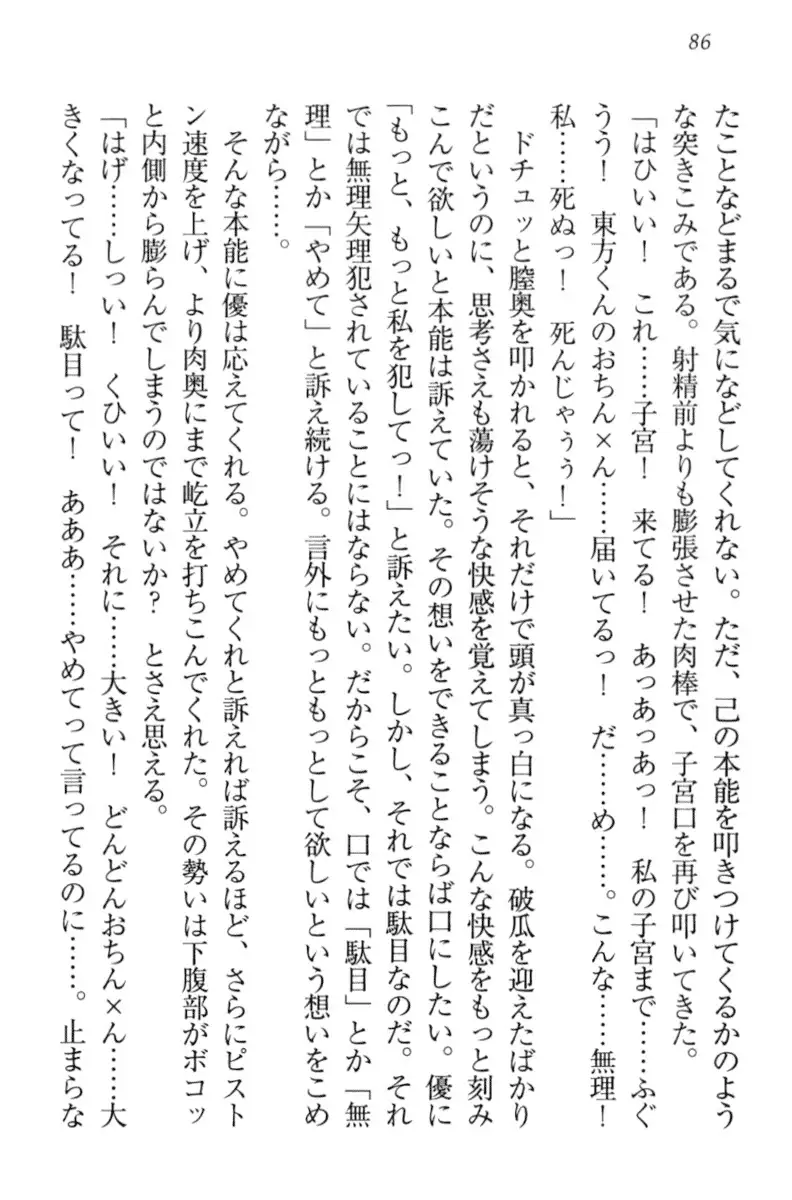 86
たことなどまるで気になどしてくれない。ただ、己の本能を叩きつけてくるかのよう
な突きこみである。射精前よりも膨張させた肉棒で、子宮口を再び叩いてきた。
「はひいい！　これ……子宮！　来てる！　あっあっあっ！　私の子宮まで……ふぐ
うう！　東方くんのおちん×ん……届いてるっ！　だ……め……。こんな……無理！
私……死ぬっ！　死んじゃぅぅ！」
　ドチュッと膣奥を叩かれると、それだけで頭が真っ白になる。破瓜を迎えたばかり
だというのに、思考さえも蕩けそうな快感を覚えてしまう。こんな快感をもっと刻み
こんで欲しいと本能は訴えていた。その想いをできることならば口にしたい。優に
「もっと、もっと私を犯してっ！」と訴えたい。しかし、それでは駄目なのだ。それ
では無理矢理犯されていることにはならない。だからこそ、口では「駄目」とか「無
理」とか「やめて」と訴え続ける。言外にもっともっとして欲しいという想いをこめ
ながら……。
　そんな本能に優は応えてくれる。やめてくれと訴えれば訴えるほど、さらにピスト
ン速度を上げ、より肉奥にまで屹立を打ちこんでくれた。その勢いは下腹部がボコッ
と内側から膨らんでしまうのではないか？　とさえ思える。
「はげ……しっい！　くひいい！　それに……大きい！　どんどんおちん×ん……大
きくなってる！　駄目って！　あああ……やめてって言ってるのに……。止まらな